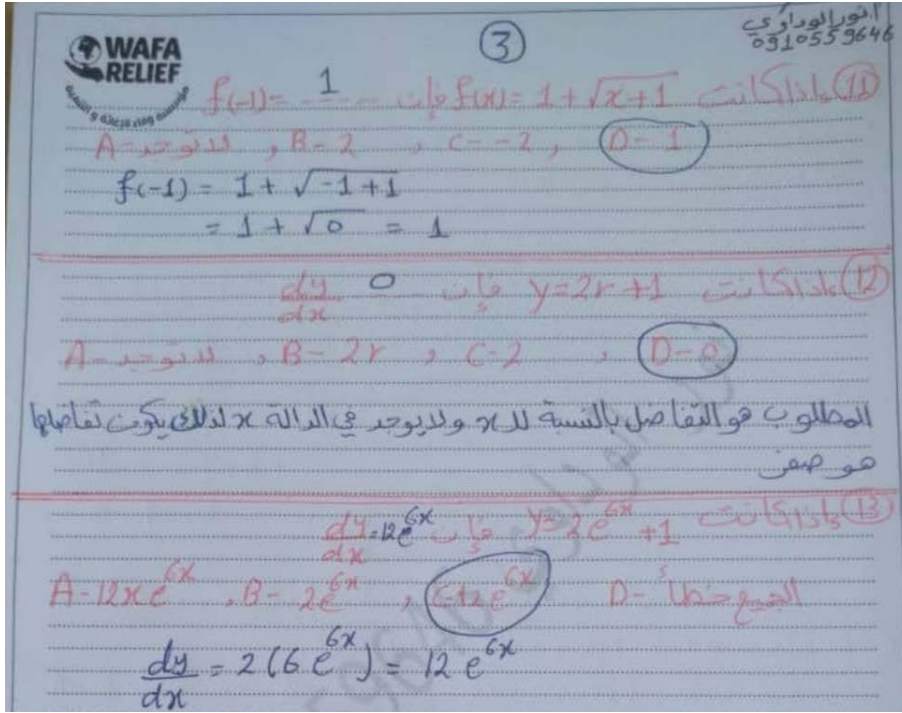 ③
أنور الوداوي
0910559646
WAFA
RELIEF
⑪ إذا كانت f(x) = 1 + √x+1 فإن f(-1) = 1
A- لا توجد , B- 2 , C- -2 , D- 1
f(-1) = 1 + √-1+1
= 1 + √0 = 1
⑫ إذا كانت y=2r+1 فإن dy/dx 0
A- لا توجد , B- 2r , C- 2 , D- 0
المطلوب هو التفاضل بالنسبة للـ x ولا يوجد في الدالة x لذلك يكون تفاضلها
هو صفر
⑬ إذا كانت y= 2e^6x +1 فإن dy/dx = 12e^6x
A- 12xe^6x , B- 2e^6x , C- 12e^6x D- الجميع خطأ
dy/dx = 2(6e^6x) = 12e^6x